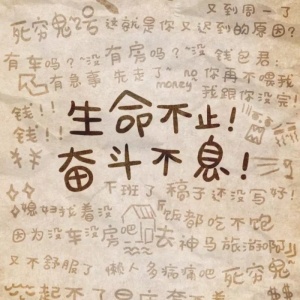 又到周一了
死穷鬼 这就是你又迟到的原因?
有车吗?没有房吗?没 钱包君:
有急事 先走了 no money 你再不喂我
我跟你没完!
钱!!
钱!!
生命不止!
奋斗不息!
下班了 稿子还没写好!
媳妇找着没 饭都吃不饱
因为没车没房吧 去神马旅游啊
又不舒服了 懒人多病痛吧 死穷鬼
起不了